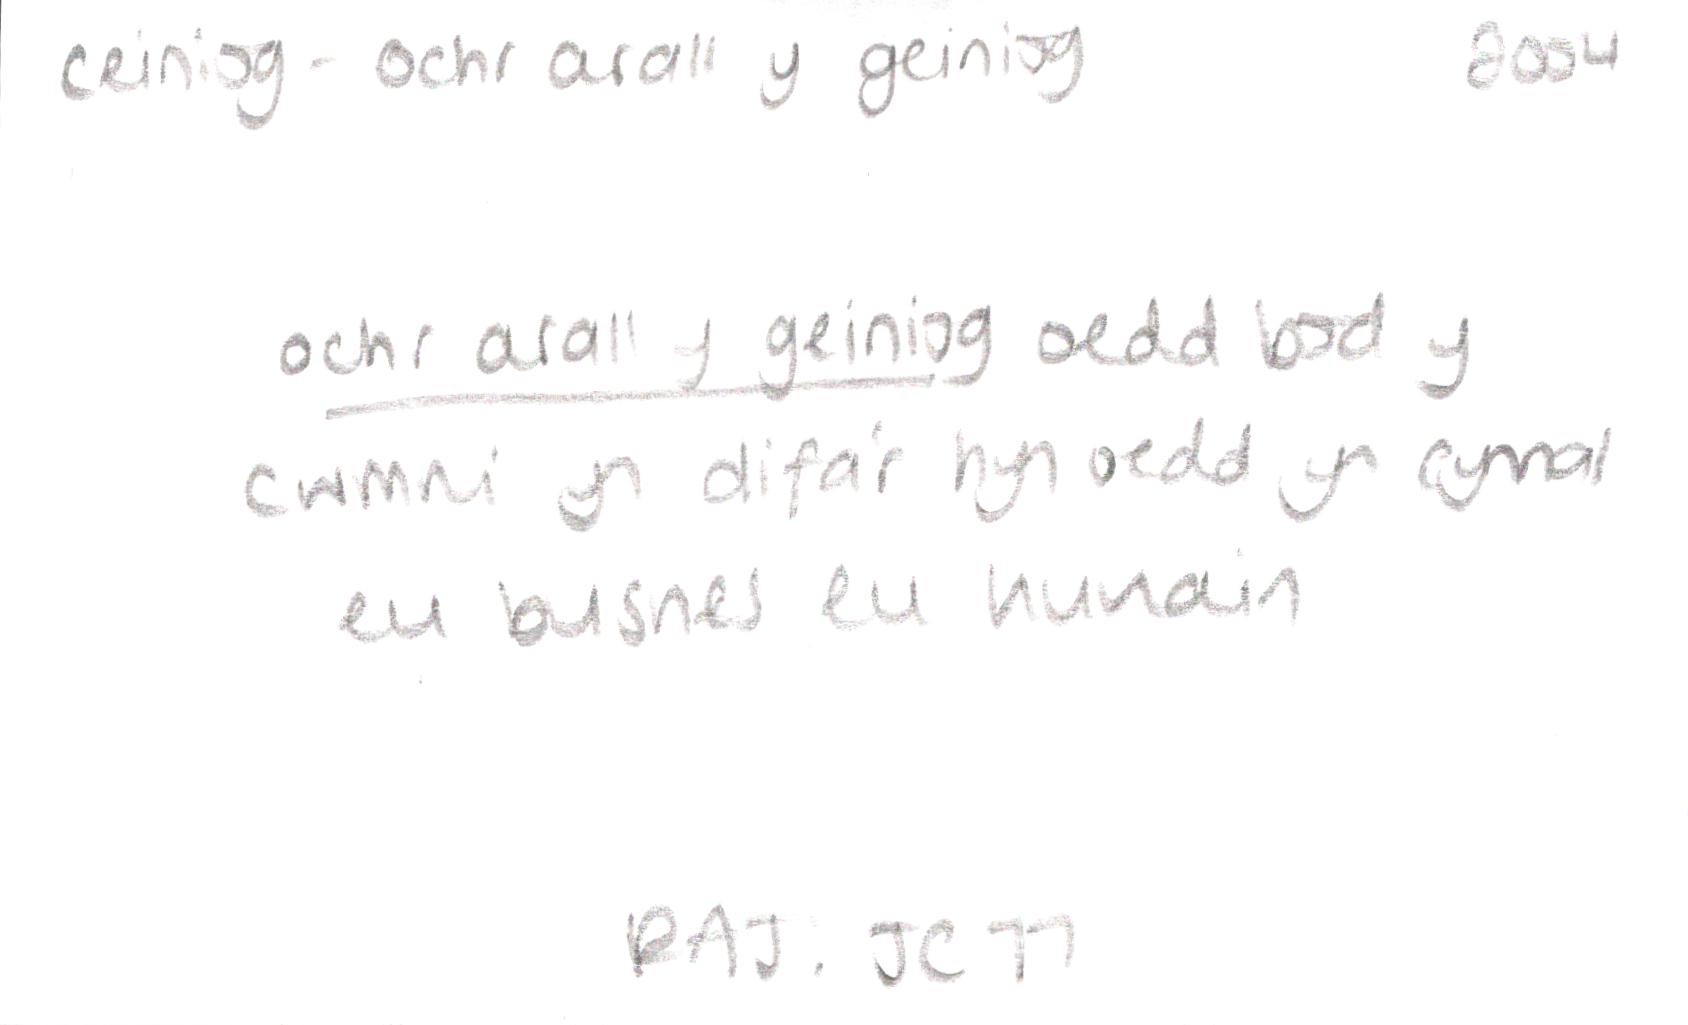 ceiniog - ochr arall y geiniog 2004
ochr arall y geiniog oedd bod y
cwmni yn difa'r hyn oedd yn cynnal
eu busnes eu hunain
RAJ. JC 77